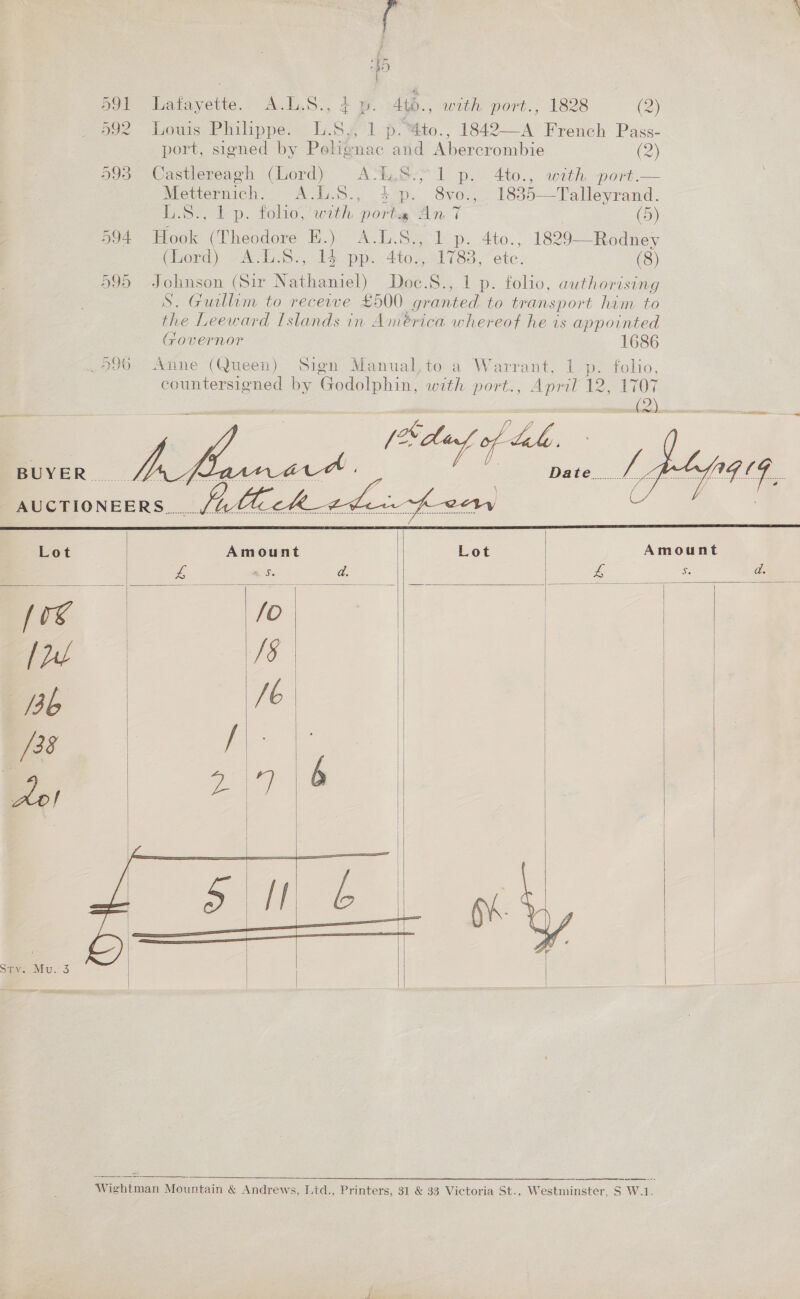 591 Lafayette. A.L.S., ½ p. 4to., with port., 1828 (2)
592 Louis Philippe. L.S., 1 p. 4to., 1842—A French Pass-
port, signed by Polignac and Abercrombie (2)
593 Castlereagh (Lord) A.L.S., 1 p. 4to., with port.—
Metternich. A.L.S., ½ p. 8vo., 1835—Talleyrand.
L.S., 1 p. folio, with port. An 7 (5)
594 Hook (Theodore E.) A.L.S., 1 p. 4to., 1829—Rodney
(Lord) A.L.S., 1½ pp. 4to., 1783, etc. (8)
595 Johnson (Sir Nathaniel) Doc.S., 1 p. folio, authorising
S. Guillim to receive £500 granted to transport him to
the Leeward Islands in America whereof he is appointed
Governor 1686
596 Anne (Queen) Sign Manual to a Warrant, 1 p. folio,
countersigned by Godolphin, with port., April 12, 1707
(2)
day of Sale.
BUYER Mr Barnard. Date 1 July 1919
AUCTIONEERS Puttick & Simpson
Lot Amount Lot Amount
£ s. d. £ s. d.
108 10
18
136 16
138 1 - -
201 2 7 6
£ 5 11 6
OK.
Srv. Mu. 3
Wightman Mountain & Andrews, Ltd., Printers, 31 & 33 Victoria St., Westminster, S W.1.